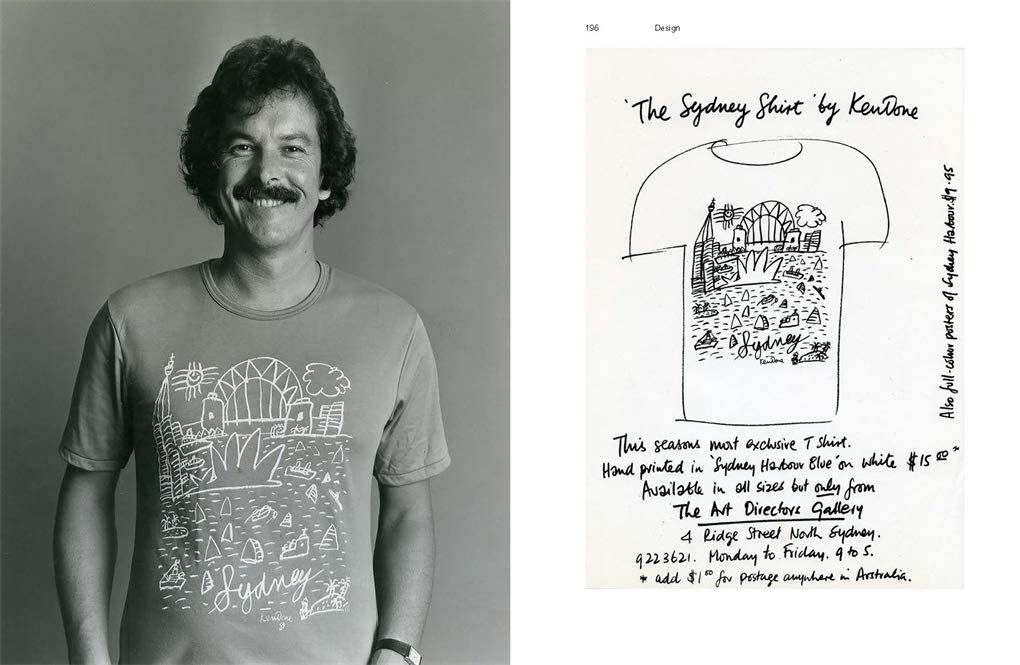 Sydney
Ken Done
196
Design
'The Sydney Shirt' by Ken Done
Sydney
Ken Done
Also full-colour posters of Sydney Harbour. $9.95
This seasons most exclusive T Shirt.
Hand printed in 'Sydney Harbour Blue' on white $15.00 *
Available in all sizes but only from
The Art Directors Gallery
4 Ridge Street North Sydney.
9223621. Monday to Friday. 9 to 5.
* add $1.00 for postage anywhere in Australia.